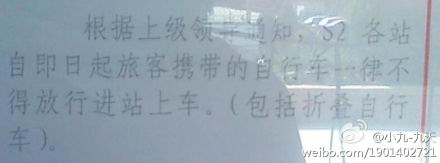 根据上级领导通知，S2 各站
自即日起旅客携带的自行车一律不
得放行进站上车。（包括折叠自行
车）。
@小九-九天
weibo.com/1901402731